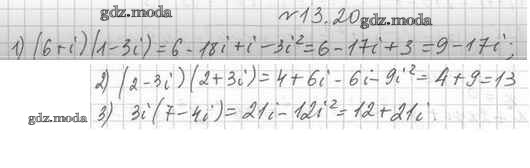 gdz.moda
№13.20
1) (6+i)(1-3i)=6-18i+i-3i²=6-17i+3=9-17i;
2) (2-3i)(2+3i)=4+6i-6i-9i²=4+9=13
gdz.moda 3) 3i(7-4i)=21i-12i²=12+21i